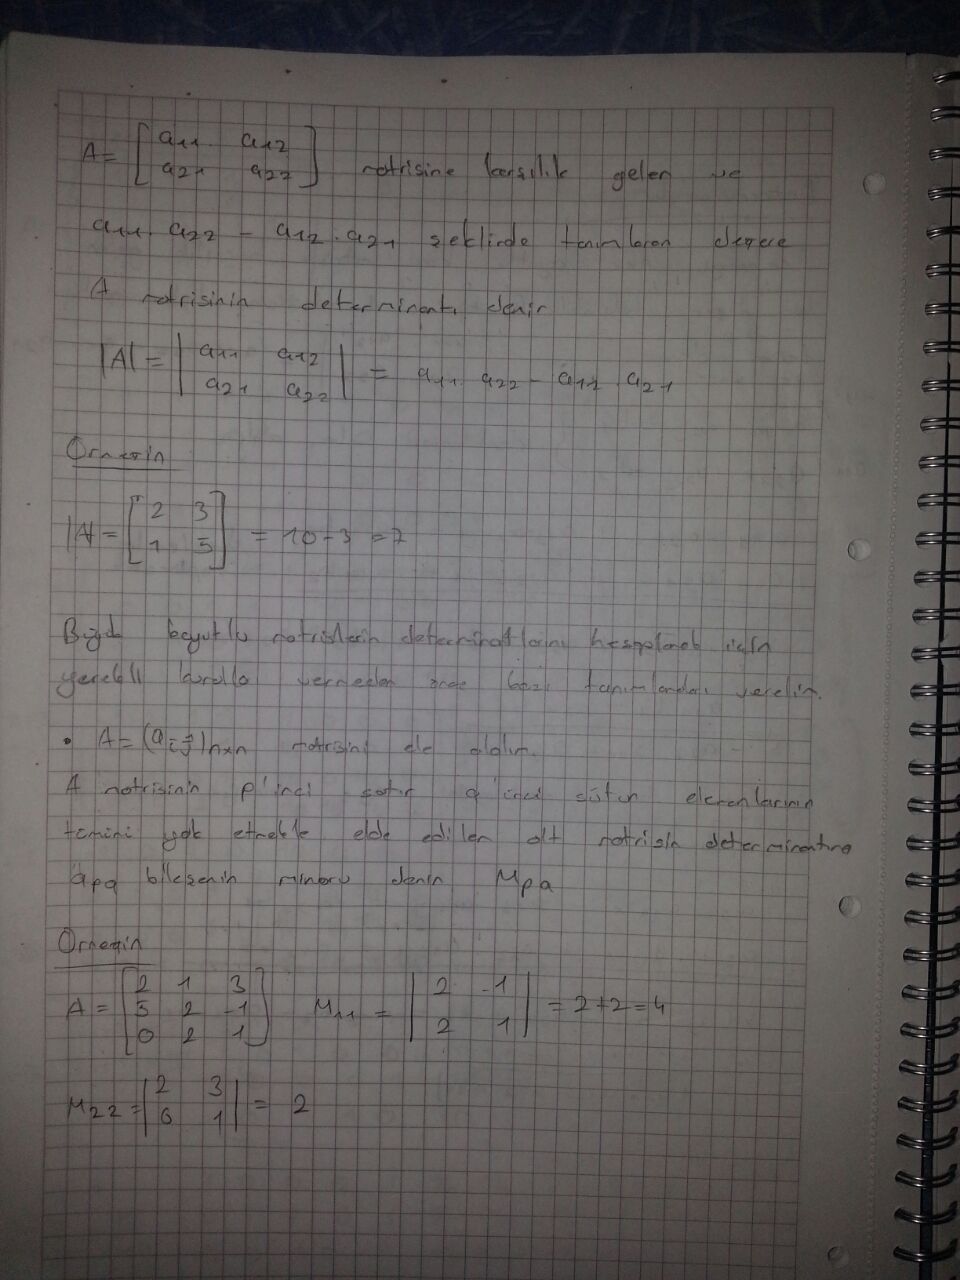 A = [ a11 a12
a21 a22 ] matrisine karşılık gelen ve
a11 . a22 - a12 . a21 şeklinde tanımlanan değere
A matrisinin determinantı denir
|A| = | a11 a12
a21 a22 | = a11 . a22 - a12 . a21
Örneğin
|A| = [ 2 3
1 5 ] = 10 - 3 = 7
Büyük boyutlu matrislerin determinatlarını hesaplamak için
gerekli kuralla vermeden önce bazı tanımlamaları verelim.
• A = (aij)nxn matrisini ele alalım.
A matrisinin p'inci satır q'inci sütun elemanlarının
tamını yok etmekle elde edilen alt matrisin determinantına
apq bileşenin minörü denir Mpq
Örneğin
A = [ 2 1 3
5 2 -1
0 2 1 ] M11 = | 2 -1
2 1 | = 2+2=4
M22 = | 2 3
0 1 | = 2